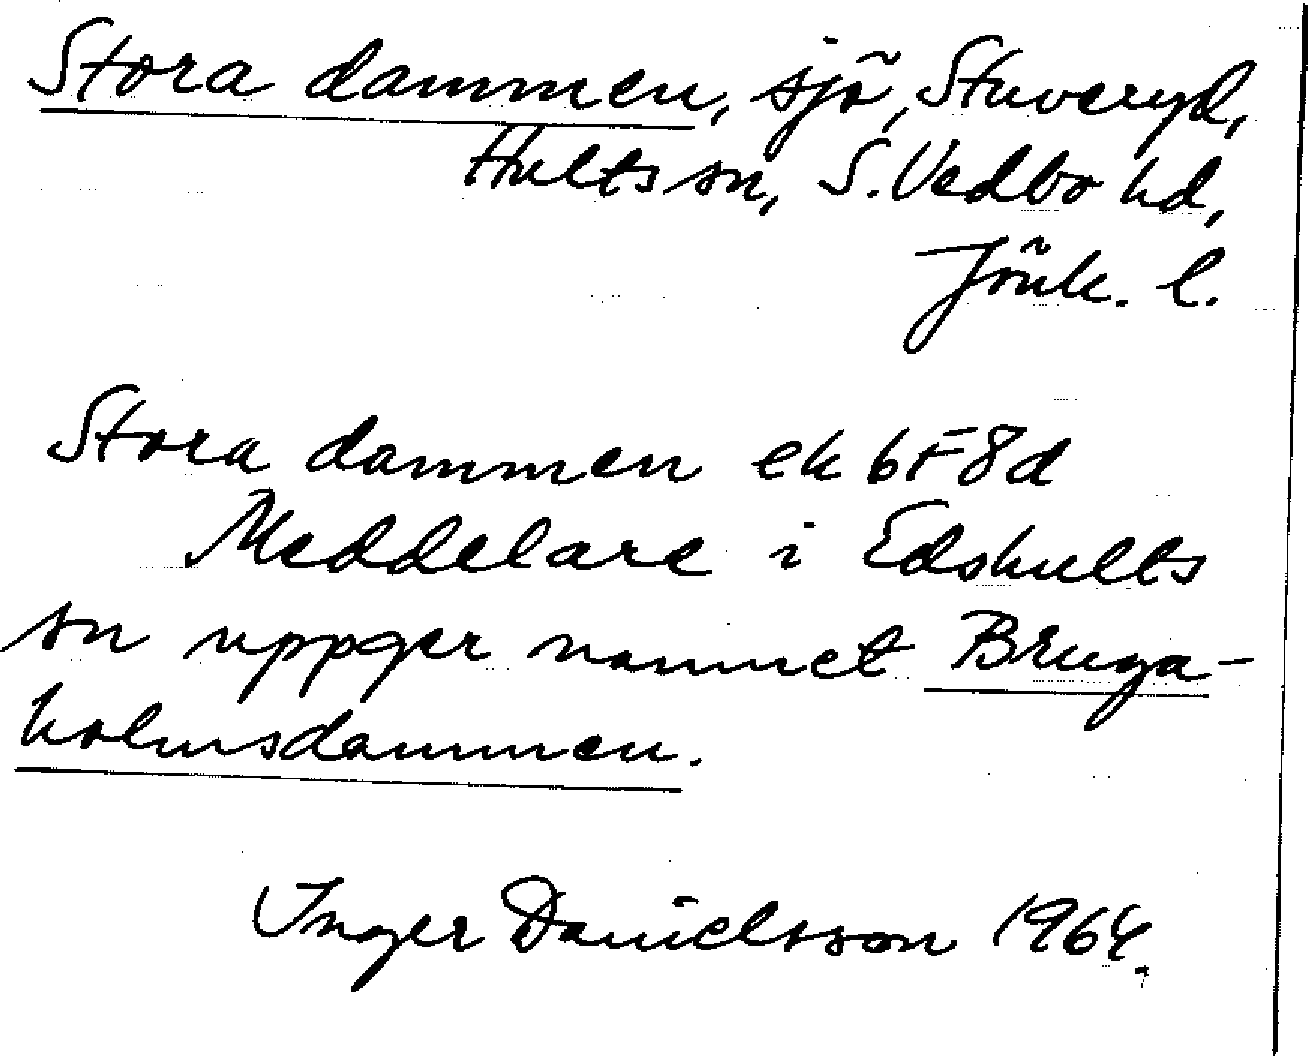 Stora dammen, sjö, Stuveryd,
Hults sn, S. Vedbo hd,
Jönk. l.
Stora dammen ek 6F8d
Meddelare i Edshults
sn uppger namnet Bruga-
holmsdammen.
Inger Danielsson 1964.